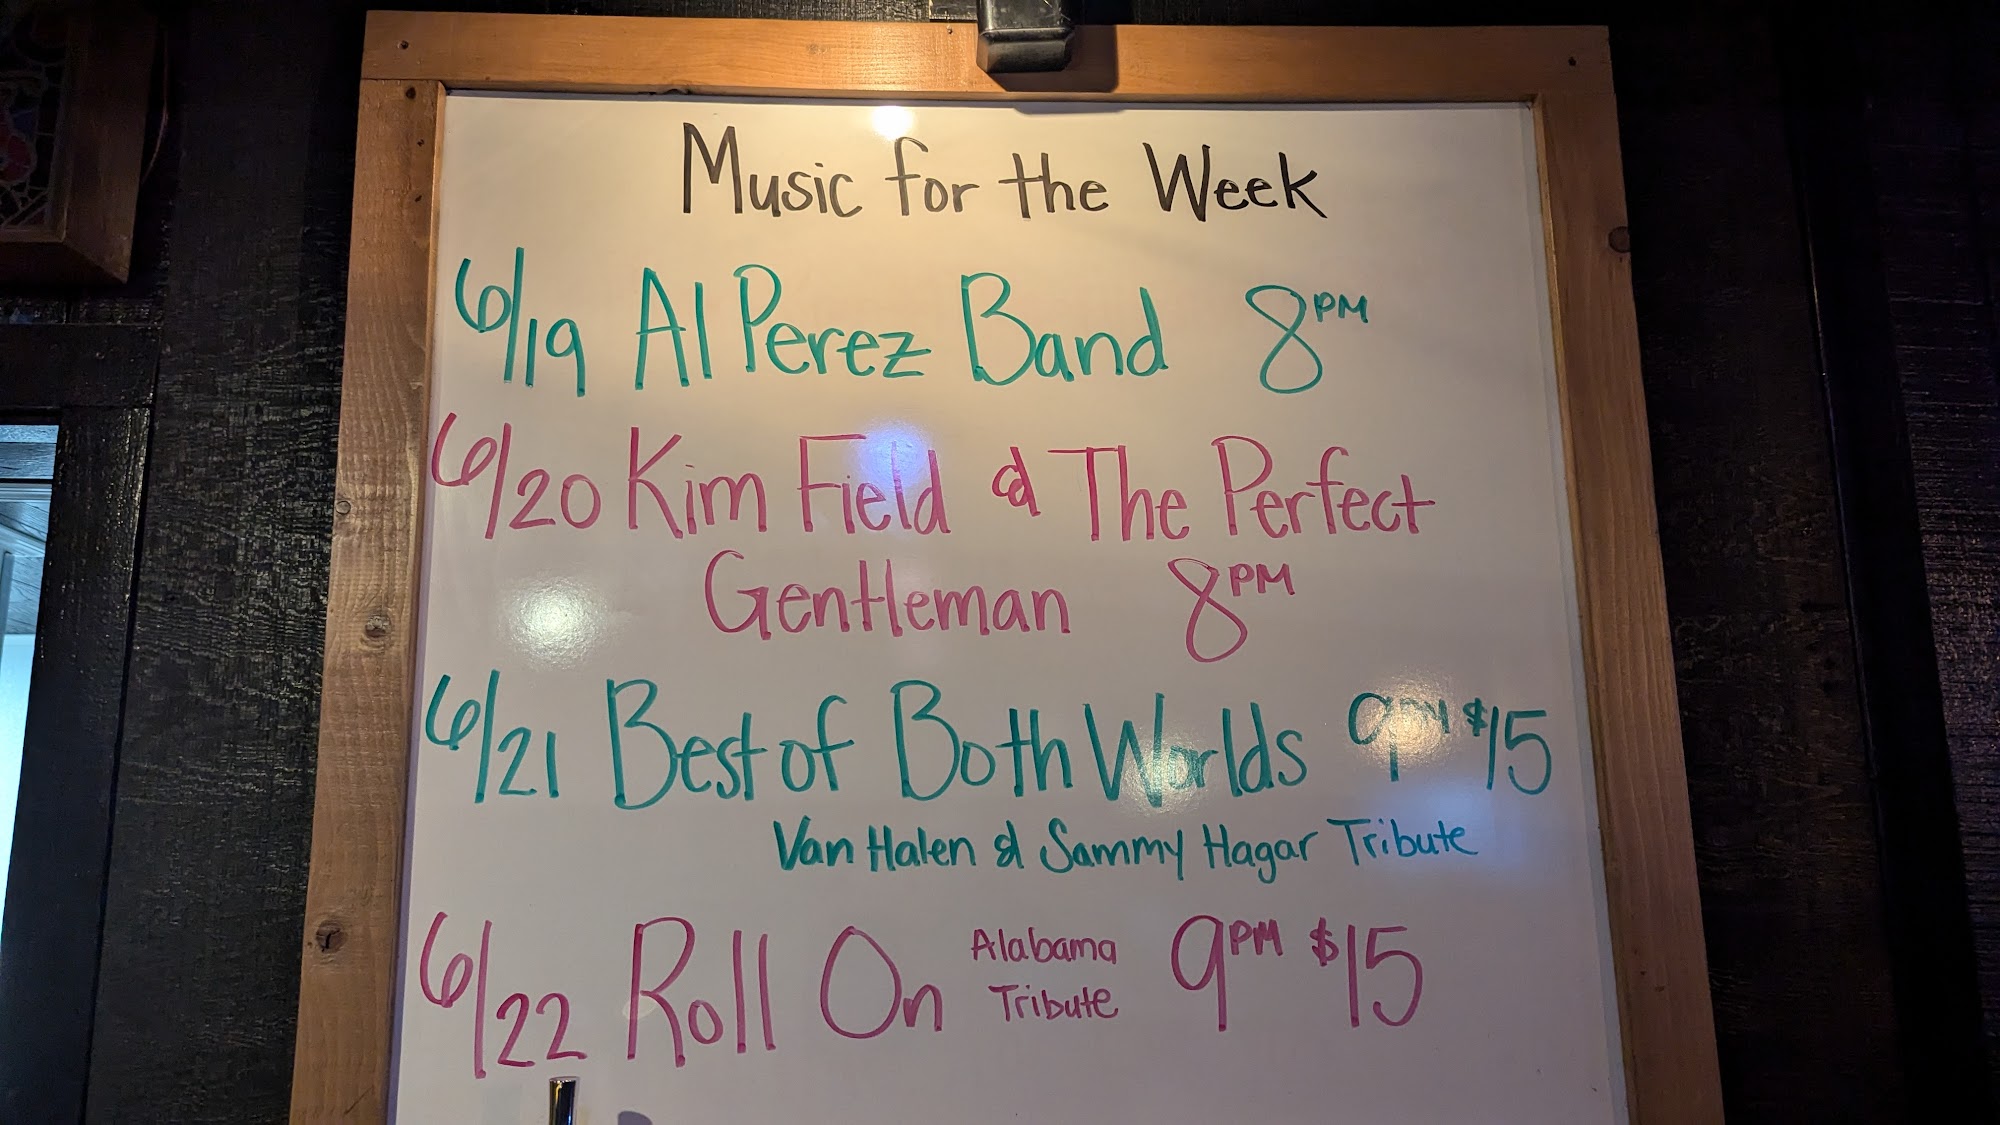 Music for the Week
6/19 Al Perez Band 8PM
6/20 Kim Field & The Perfect
Gentleman 8PM
6/21 Best of Both Worlds 9PM $15
Van Halen & Sammy Hagar Tribute
6/22 Roll On Alabama Tribute 9PM $15